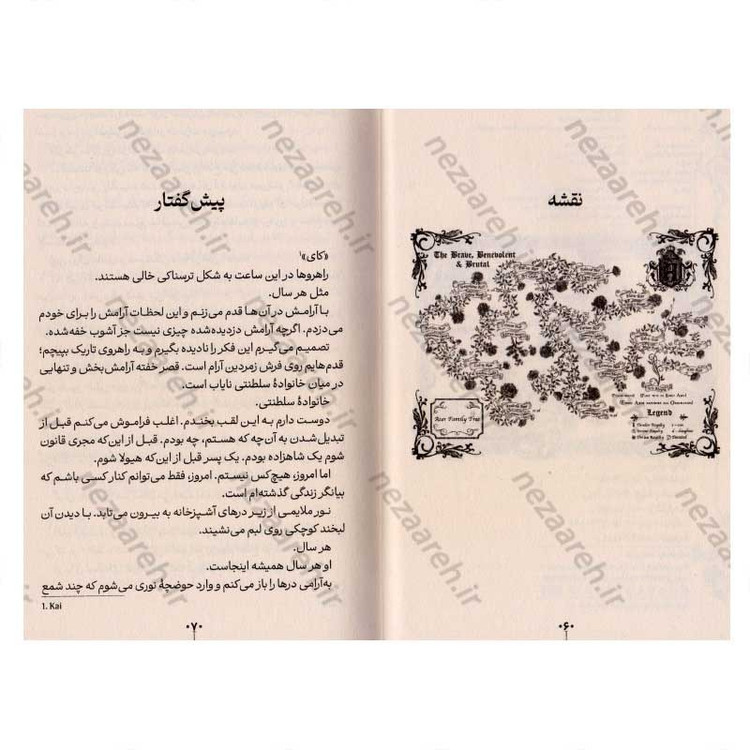 نقشه
The Brave, Benevolent
& Brutal
Azer Family Tree
Legend
۰۶۰
پیش‌گفتار
«کای»۱
راهروها در این ساعت به شکل ترسناکی خالی هستند.
مثل هر سال.
با آرامش در آن‌ها قدم می‌زنم و این لحظات آرامش را برای خودم
می‌دزدم. اگرچه آرامش دزدیده‌شده چیزی نیست جز آشوب خفه‌شده.
تصمیم می‌گیرم این فکر را نادیده بگیرم و به راهروی تاریک بپیچم؛
قدم‌هایم روی فرش زمردین آرام است. قصر خفته آرامش‌بخش و تنهایی
در میان خانوادهٔ سلطنتی نایاب است.
خانوادهٔ سلطنتی.
دوست دارم به این لقب بخندم. اغلب فراموش می‌کنم قبل از
تبدیل‌شدن به آن‌چه که هستم، چه بودم. قبل از این‌که مجری قانون
شوم یک شاهزاده بودم. یک پسر قبل از این‌که هیولا شوم.
اما امروز، هیچ‌کس نیستم. امروز، فقط می‌توانم کنار کسی باشم که
بیانگر زندگی گذشته‌ام است.
نور ملایمی از زیر درهای آشپزخانه به بیرون می‌تابد. با دیدن آن
لبخند کوچکی روی لبم می‌نشیند.
هر سال.
او هر سال همیشه اینجاست.
به‌آرامی درها را باز می‌کنم و وارد حوضچهٔ نوری می‌شوم که چند شمع
1. Kai
۰۷۰
nezaareh.ir
nezaareh.ir
nezaareh.ir
nezaareh.ir
nezaareh.ir
nezaareh.ir